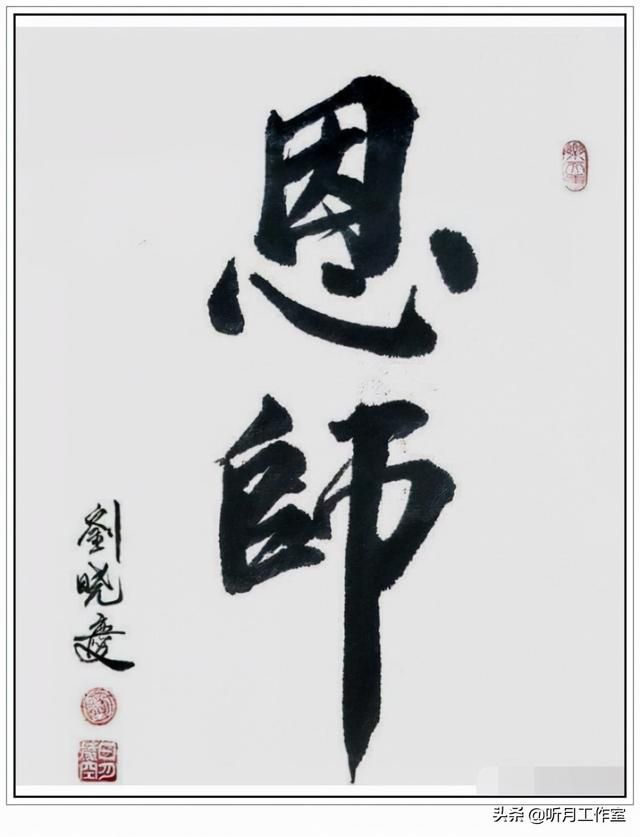 恩師
劉晓慶
头条 @听月工作室